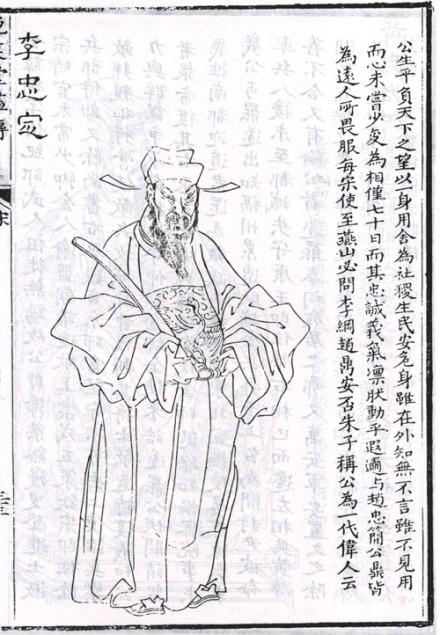 公生平負天下之望以一身用舍為社稷生民安危身雖在外知無不言雖不見用
而心未嘗少変為相僅七十日而其忠誠義氣凛肰動乎遐邇与趙忠簡公鼎皆
為遠人所畏服每宗使至燕山必問李綱趙鼎安否朱子稱公為一代偉人云
李忠定